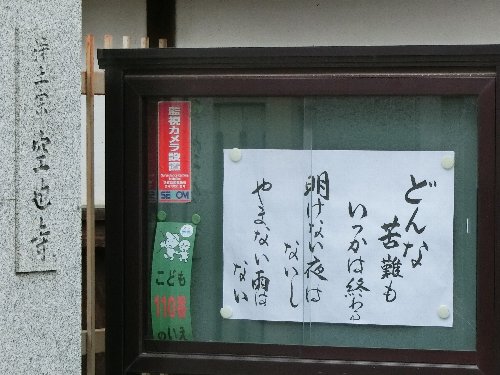 どんな
苦難も
いつかは終わる
明けない夜は
ないし
やまない雨は
ない
浄土宗 空也寺
監視カメラ設置
SECOM
こども
110番
のいえ